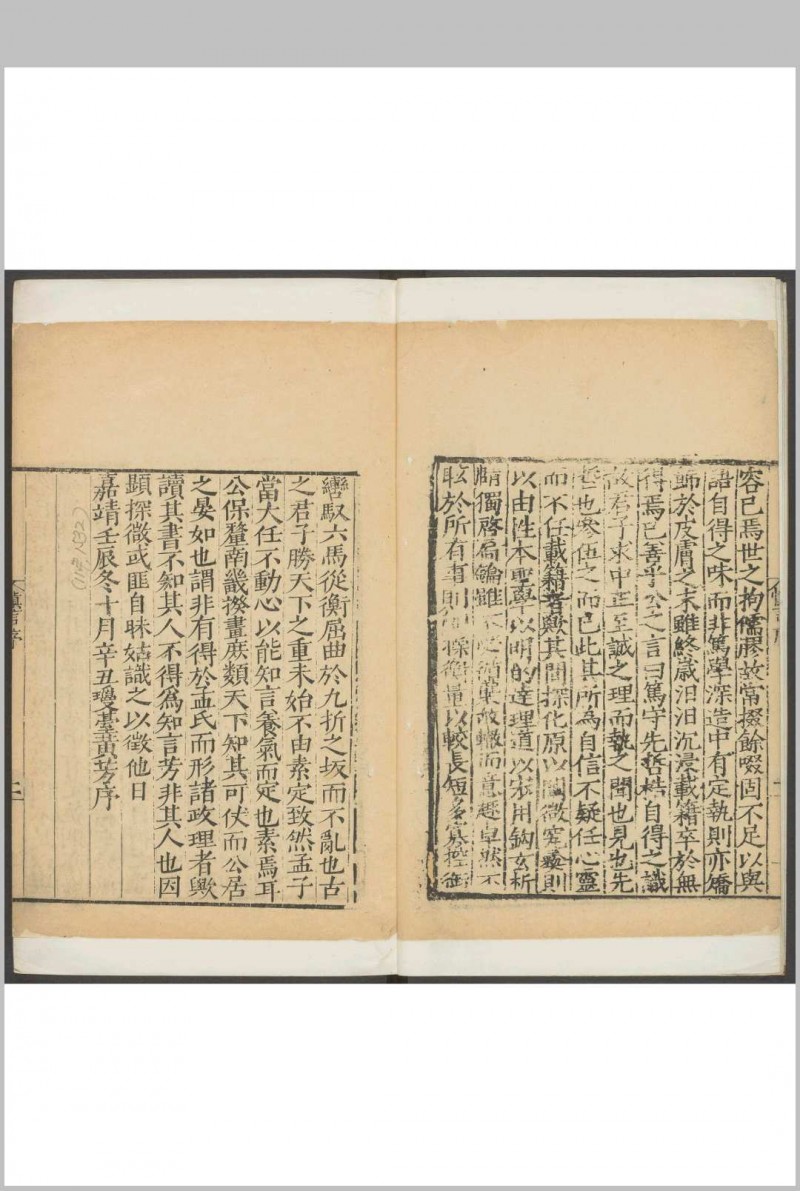 容已焉世之拘儒膠故常掇餘啜固不足以與
語自得之味而非篤學深造中有定執則亦矯
歸於皮膚之末雖終歲汨汨沉浸載籍卒於無
得焉已善乎公之言曰篤守先哲梏自得之識
故君子求中正至誠之理而執之聞也見也先
哲也參伍之而已此其所為自信不疑任心靈
而不任載籍者歟其間探化原以闡微究變則
以由性本聖學以明的達理道以宏用鈎玄析
精獨啓扃鑰雖不定循葉故轍而意趣卓然不
眩於所有書則操衡量以較長短多寡控御
轡馭六馬從衡屈曲於九折之坂而不亂也古
之君子勝天下之重未始不由素定致然孟子
當大任不動心以能知言養氣而定也素焉耳
公保釐南畿揆畫庶類天下知其可伏而公居
之晏如也謂非有得於孟氏而形諸政理者歟
讀其書不知其人不得為知言芳非其人也因
顯探微或匪自昧姑識之以徵他日
嘉靖壬辰冬十月辛丑瓊臺黃芳序